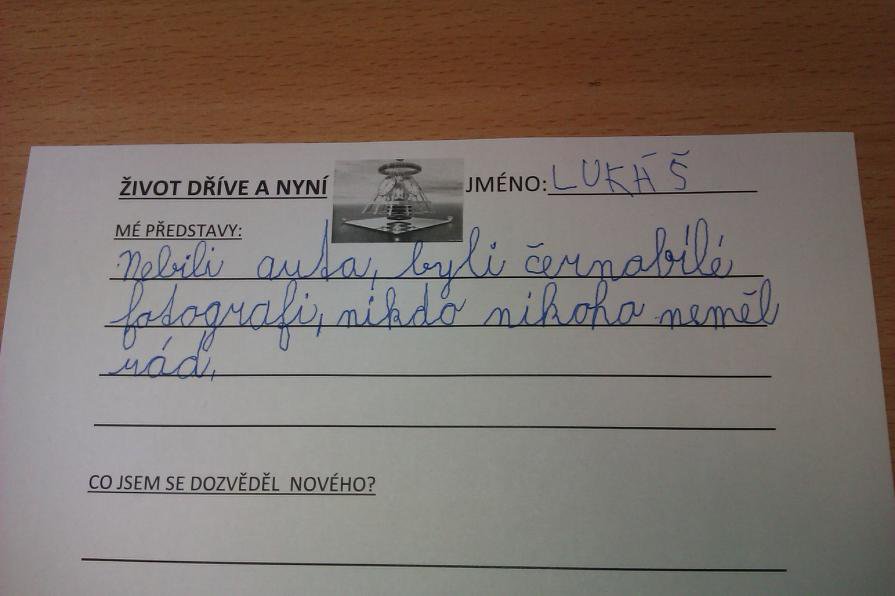 ŽIVOT DŘÍVE A NYNÍ JMÉNO: LUKÁŠ
MÉ PŘEDSTAVY:
Nebili auta, byli černabílé
fotografi, nikdo nikoho neměl
rád,
CO JSEM SE DOZVĚDĚL NOVÉHO?